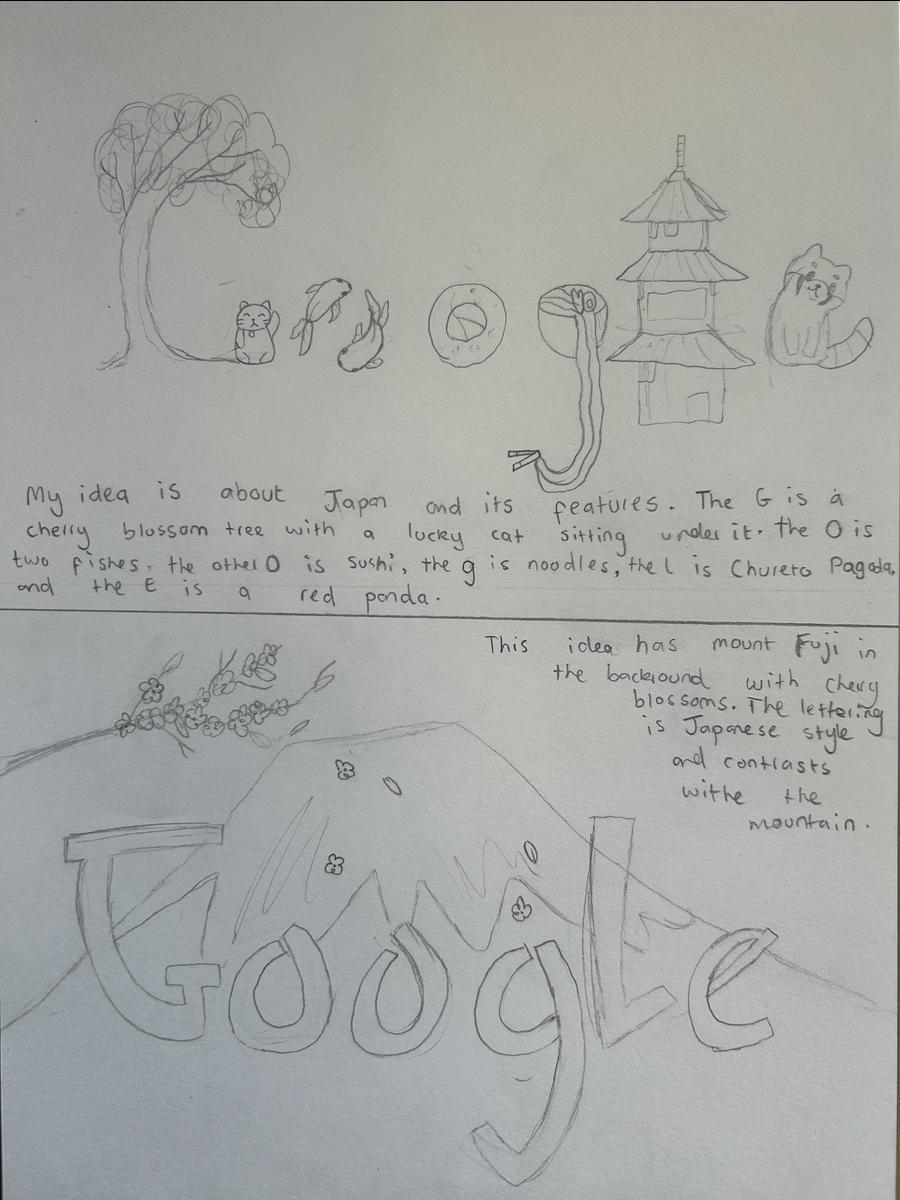 My idea is about Japan and its features. The G is a
cherry blossom tree with a lucky cat sitting under it. the O is
two fishes, the other O is sushi, the g is noodles, the l is Chureto Pagoda,
and the E is a red panda.
This idea has mount Fuji in
the backround with cherry
blossoms. The lettering
is Japanese style
and contrasts
withe the
mountain.
GoogLe